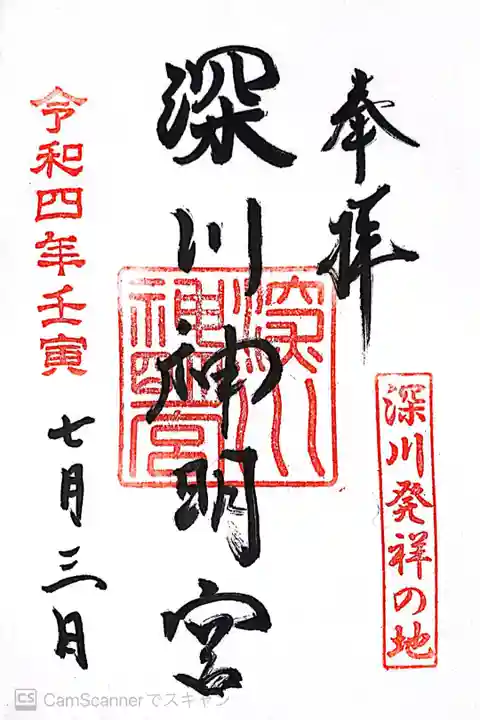 奉拝
深川発祥の地
深川神明宮
深川神明宮
令和四年壬寅
七月三日
CS CamScannerでスキャン